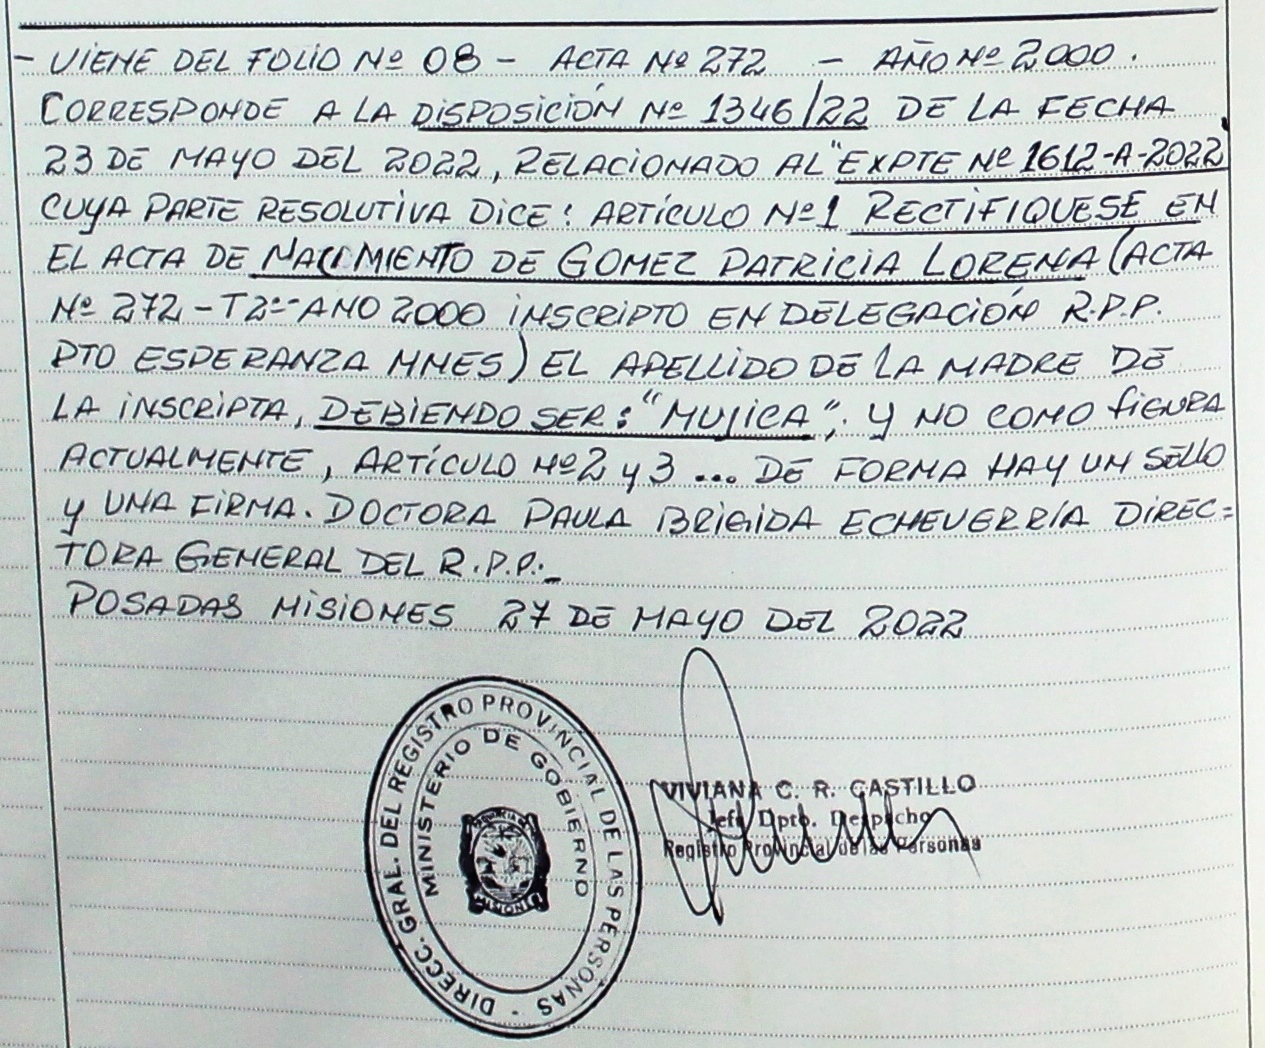 - VIENE DEL FOLIO Nº 08 - ACTA Nº 272 - AÑO Nº 2000.
CORRESPONDE A LA DISPOSICIÓN Nº 1346/22 DE LA FECHA
23 DE MAYO DEL 2022, RELACIONADO AL "EXPTE Nº 1612-A-2022"
CUYA PARTE RESOLUTIVA DICE: ARTÍCULO Nº1 RECTIFIQUESE EN
EL ACTA DE NACIMIENTO DE GOMEZ PATRICIA LORENA (ACTA
Nº 272 - T2º - AÑO 2000 INSCRIPTO EN DELEGACIÓN R.P.P.
PTO ESPERANZA MNES) EL APELLIDO DE LA MADRE DE
LA INSCRIPTA, DEBIENDO SER: "MUJICA", Y NO COMO FIGURA
ACTUALMENTE, ARTÍCULO Nº2 Y 3 ... DE FORMA HAY UN SELLO
Y UNA FIRMA. DOCTORA PAULA BRIGIDA ECHEVERRÍA DIREC=
TORA GENERAL DEL R.P.P.._
POSADAS MISIONES 27 DE MAYO DEL 2022
DIRECC. GRAL. DEL REGISTRO PROVINCIAL DE LAS PERSONAS -
MINISTERIO DE GOBIERNO
PROVINCIA DE
MISIONES
VIVIANA C. R. CASTILLO
Jefa Dpto. Despacho
Registro Provincial de las Personas